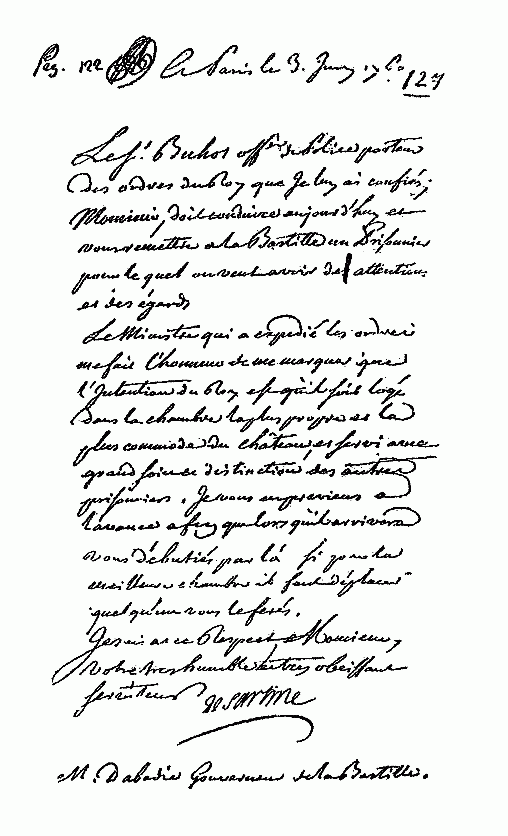 Pag. 122 à Paris le 3. Juin 1760
127
Le Sr. Buhot offer. de Police porteur
des ordres du Roy que Je luy ai confiés;
Monsieur, doit conduire aujourd'huy et
vous remettre à la Bastille un Prisonnier
pour le quel on veut avoir des attentions
et des égards
Le Ministre qui a expedié les ordres
me fait l'honneur de me marquer que
l'Intention du Roy est qu'il soit logé
dans la chambre la plus propre et la
plus commode du château, et servi avec
grand soin et distinction des autres
prisonniers. Je vous en previens a
l'avance afin que lors qu'il arrivera
vous débutiés par là si pour la
meilleure chambre il faut déplacer
quelqu'un vous le ferés.
Je suis avec Respect Monsieur,
Votre tres humble et tres obeissant
serviteur De Sartine
M. Dabadie Gouverneur de la Bastille.